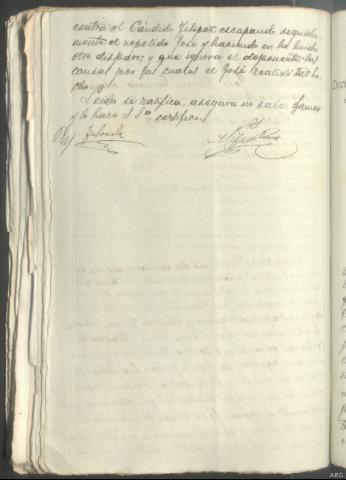 contra el Cándido Felipez escapando seguida-
mente el repetido José y haciendo en la huida
otro disparo; y que ignora el deponente las
causas por las cuales el José realizó tal he-
cho.
Leida se ratifica, asegura no saber firmar
y lo hace S. Sª, certifico.
Miguel
ARG